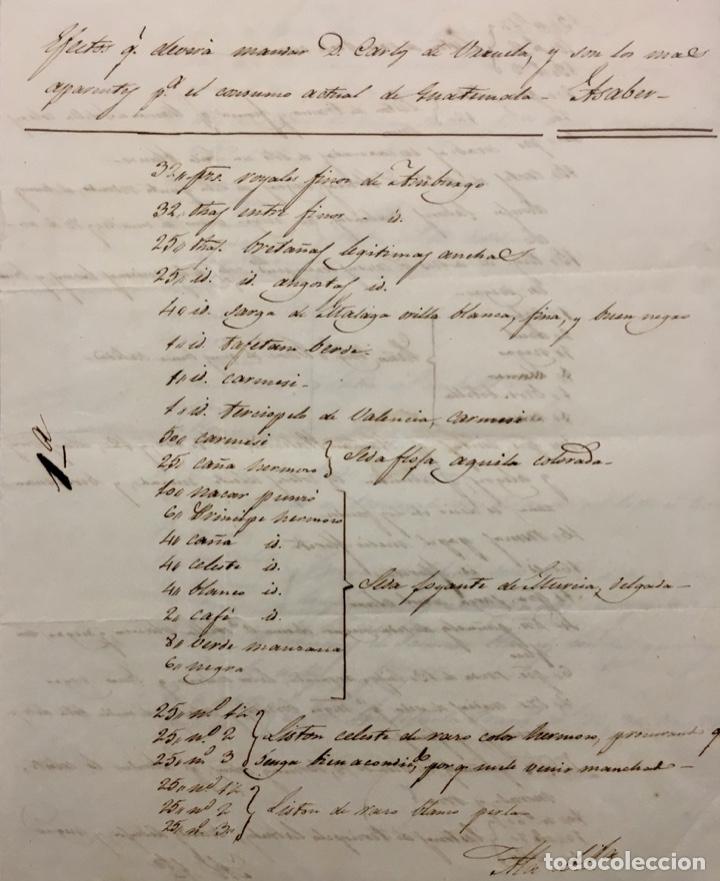 Efectos q.e deverá mandar D. Carlos de Urruela, y son los mas
aparentes p.a el consumo actual de Guatemala - Asaber -
320 pzs. royales finos de Amburgo
320 thas entre finos - id.
250 thas. bretañas legitimas anchas
250 id. id. angostas id.
40 id. sarga de Malaga orilla blanca, fina, y buen negro
10 id. tafetan berde.
10 id. carmesi.
10 id. terciopelo de Valencia, carmesi
500 carmesi
250 caña hermoso } Seda floja aguila colorada -
1.a
100 nacar punzó
60 Principe hermoso
40 caña id.
40 celeste id.
40 blanco id. } Seda joyante de Murcia, delgada -
20 café id.
80 verde manzana
60 negra
250 n.o 1½
250 n.o 2 } Liston celeste de raso color hermoso, procurando q
250 n.o 3 benga bien acondic.do, porq. suele venir manchad -
250 n.o 1½
250 n.o 2 } Liston de raso blanco perla
250 n.o 3
todocoleccion.net